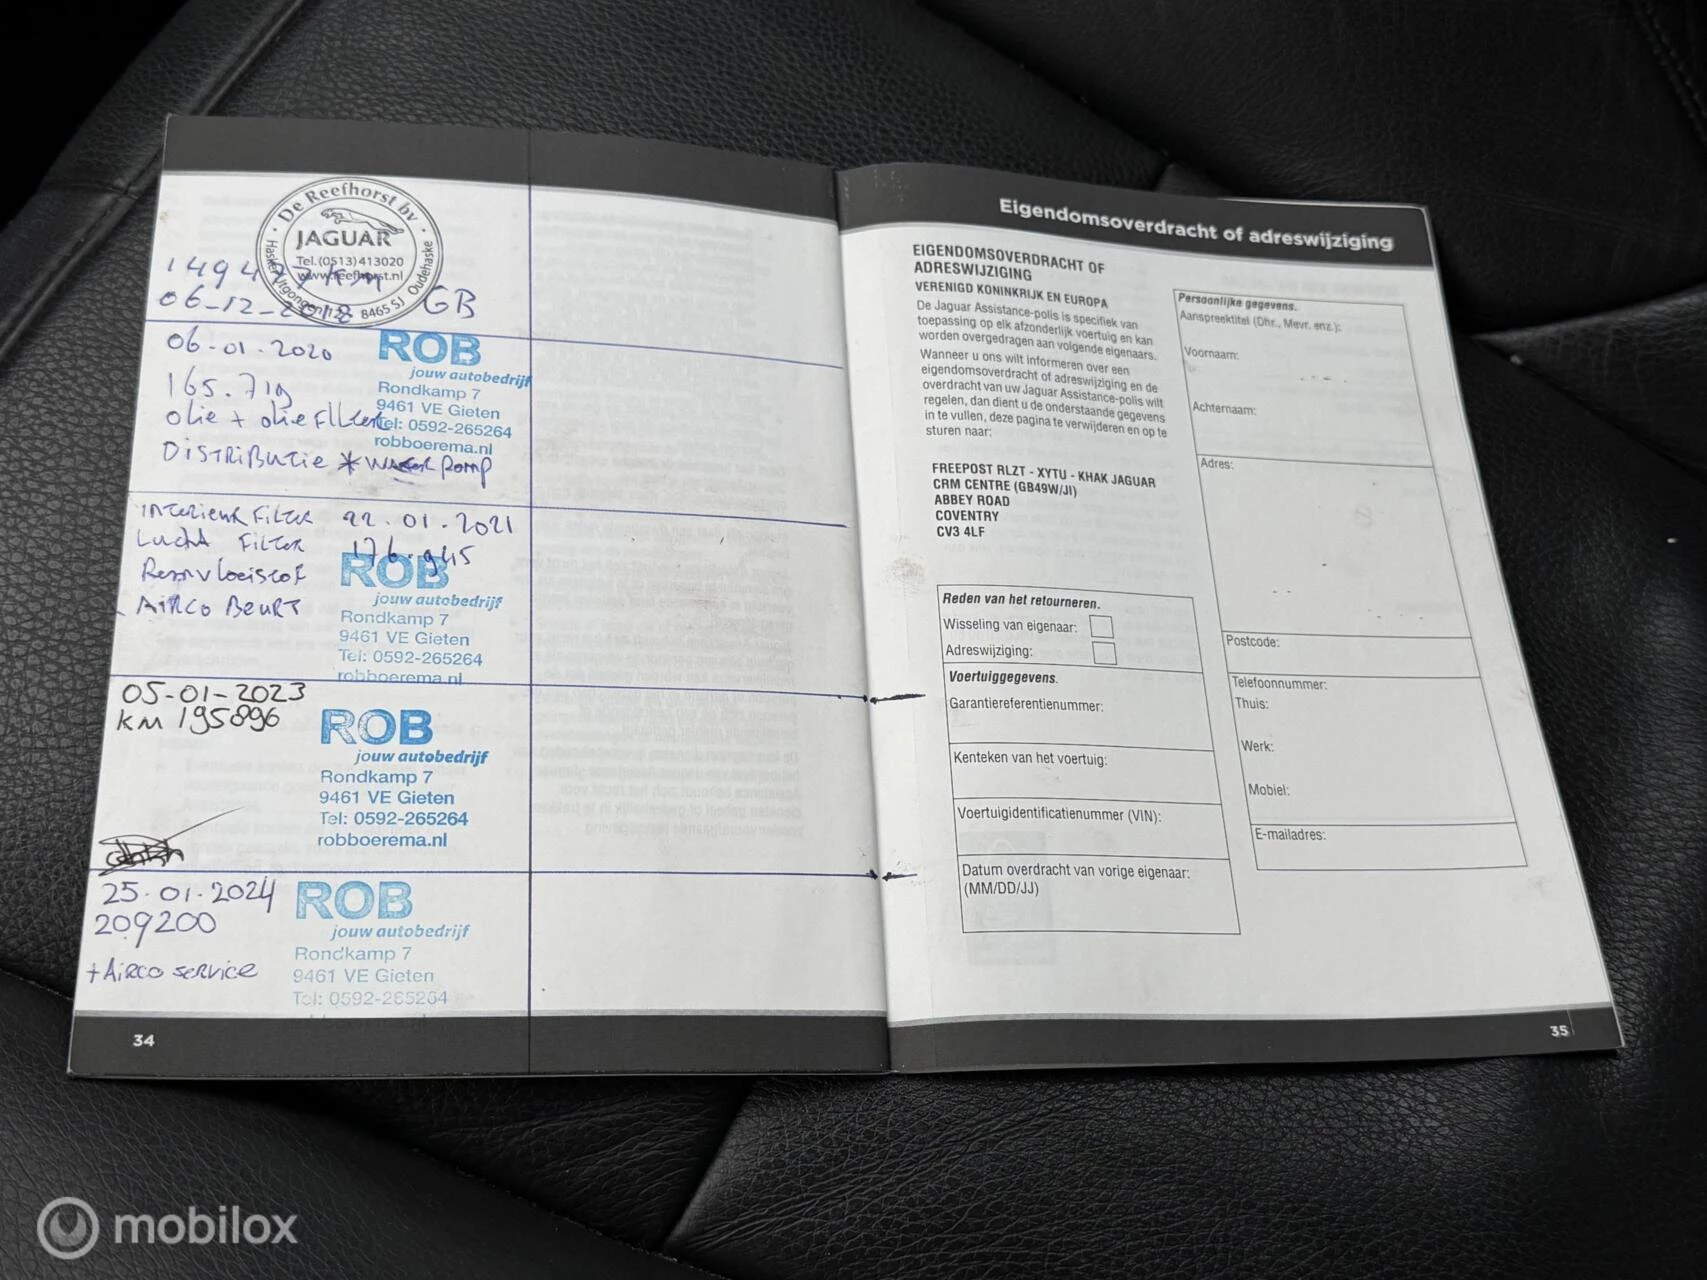 De Reefhorst bv
JAGUAR
Tel.(0513)413020
www.reefhorst.nl
8465 SJ Oudehaske
06-12-2018 GB
06-01-2020
165.719
ROB
jouw autobedrijf
Rondkamp 7
9461 VE Gieten
Tel: 0592-265264
robboerema.nl
olie + olie Filter
DISTRIBUTIE * water pomp
INTERIEUR FILTER 22.01.2021
LUCHT FILTER 176.945
Remvloeistof
AIRCO BEURT
ROB
jouw autobedrijf
Rondkamp 7
9461 VE Gieten
Tel: 0592-265264
robboerema.nl
05-01-2023
KM 195896
ROB
jouw autobedrijf
Rondkamp 7
9461 VE Gieten
Tel: 0592-265264
robboerema.nl
25-01-2024
209200
+ AIRCO SERVICE
ROB
jouw autobedrijf
Rondkamp 7
9461 VE Gieten
Tel: 0592-265264
34
Eigendomsoverdracht of adreswijziging
EIGENDOMSOVERDRACHT OF
ADRESWIJZIGING
VERENIGD KONINKRIJK EN EUROPA
De Jaguar Assistance-polis is specifiek van
toepassing op elk afzonderlijk voertuig en kan
worden overgedragen aan volgende eigenaars.
Wanneer u ons wilt informeren over een
eigendomsoverdracht of adreswijziging en de
overdracht van uw Jaguar Assistance-polis wilt
regelen, dan dient u de onderstaande gegevens
in te vullen, deze pagina te verwijderen en op te
sturen naar:
FREEPOST RLZT - XYTU - KHAK JAGUAR
CRM CENTRE (GB49W/JI)
ABBEY ROAD
COVENTRY
CV3 4LF
Reden van het retourneren.
Wisseling van eigenaar:
Adreswijziging:
Voertuiggegevens.
Garantiereferentienummer:
Kenteken van het voertuig:
Voertuigidentificatienummer (VIN):
Datum overdracht van vorige eigenaar:
(MM/DD/JJ)
Persoonlijke gegevens.
Aanspreektitel (Dhr., Mevr. enz.):
Voornaam:
Achternaam:
Adres:
Postcode:
Telefoonnummer:
Thuis:
Werk:
Mobiel:
E-mailadres:
35
mobilox